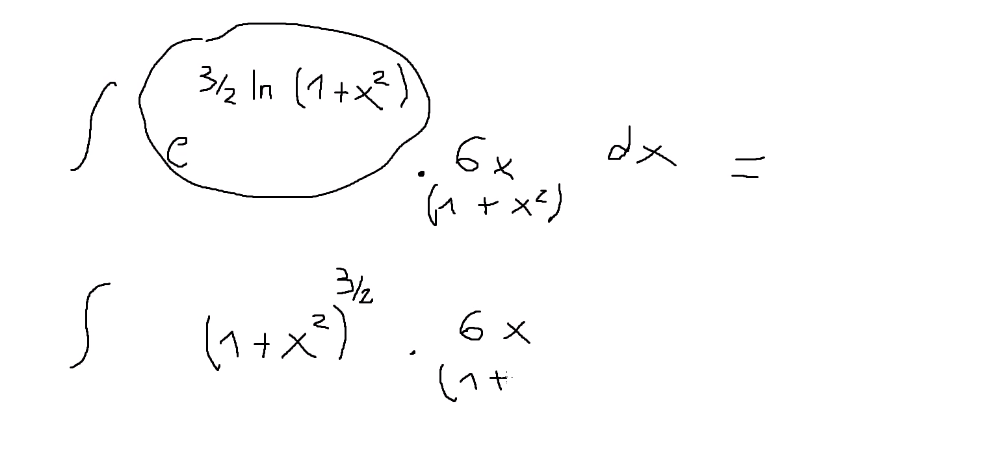 ∫ e^{3/2 ln (1+x²)} · 6x dx =
(1 + x²)
∫ (1+x²)^{3/2} · 6x
(1+